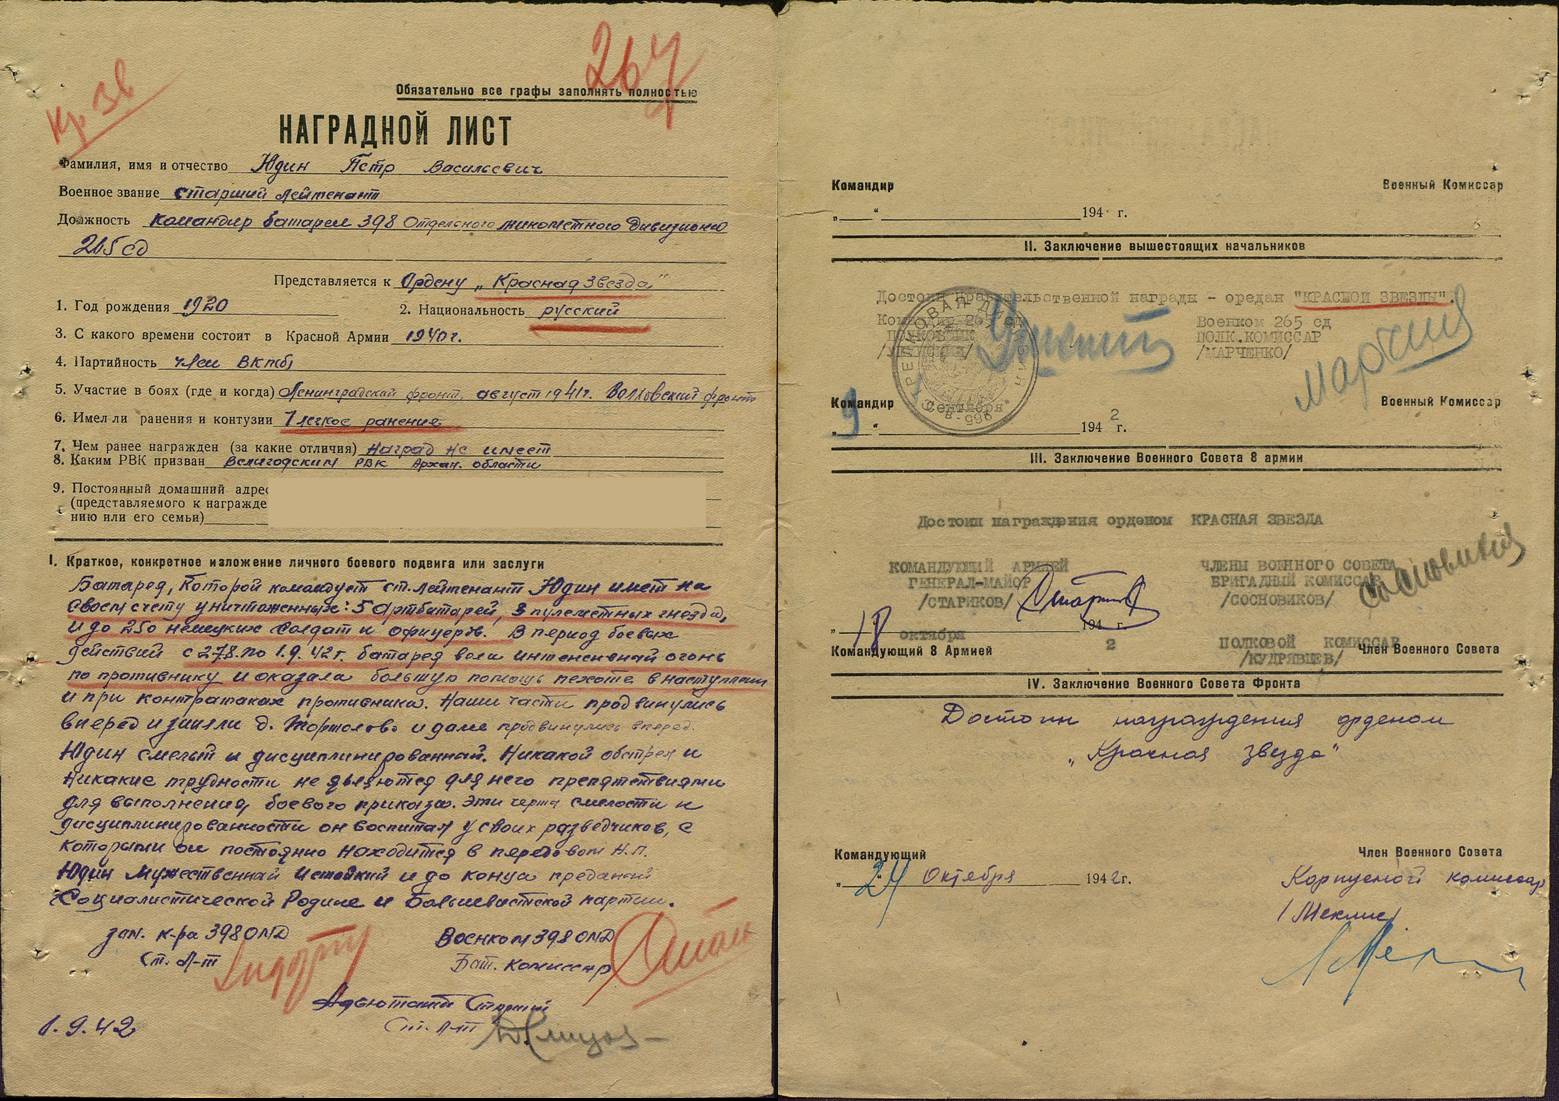 Кр. Зв
267
Обязательно все графы заполнять полностью
НАГРАДНОЙ ЛИСТ
Фамилия, имя и отчество Юдин Петр Васильевич
Военное звание старший лейтенант
Должность командир батареи 398 отдельного минометного дивизиона
265 сд
Представляется к Ордену „Красная Звезда"
1. Год рождения 1920 2. Национальность русский
3. С какого времени состоит в Красной Армии 1940 г.
4. Партийность член ВКПб
5. Участие в боях (где и когда) Ленинградский фронт, август 1941 г. Волховский фронт
6. Имел ли ранения и контузии 1 легкое ранение
7. Чем ранее награжден (за какие отличия) Наград не имеет
8. Каким РВК призван Вологодским РВК Архан. области
9. Постоянный домашний адрес
(представляемого к награжде
нию или его семьи)
I. Краткое, конкретное изложение личного боевого подвига или заслуги
Батарея, которой командует ст. лейтенант Юдин имеет на
своем счету уничтоженных: 5 артбатарей, 3 пулеметных гнезда,
и до 250 немецких солдат и офицеров. В период боевых
действий с 27.8. по 1.9.42 г. батарея вела интенсивный огонь
по противнику и оказала большую помощь пехоте в наступлении
и при контратаках противника. Наши части продвинулись
вперед и заняли д. Тортолово и далее продвинулись вперед.
Юдин смелый и дисциплинированный. Никакой обстрел и
никакие трудности не являются для него препятствиями
для выполнения боевого приказа. Эти черты смелости и
дисциплинированности он воспитал у своих разведчиков, с
которыми он постоянно находится в передовом Н.П.
Юдин мужественный стойкий и до конца преданный
Социалистической Родине и Большевистской партии.
зам. к-ра 398 ОМД Военком 398 ОМД
Ст. Л-т Бат. комиссар
Адъютант Старший
Ст. Л-т
1.9.42
Командир Военный Комиссар
„ " 194 г.
II. Заключение вышестоящих начальников
Достоин правительственной награды - ордена "КРАСНОЙ ЗВЕЗДЫ".
Командир 265 сд Военком 265 сд
ПОЛКОВНИК ПОЛК.КОМИССАР
/МАРЧЕНКО/
Командир Военный Комиссар
„9" Сентября 1942 г.
III. Заключение Военного Совета 8 армии
Достоин награждения орденом КРАСНАЯ ЗВЕЗДА
КОМАНДУЮЩИЙ АРМИЕЙ ЧЛЕНЫ ВОЕННОГО СОВЕТА
ГЕНЕРАЛ-МАЙОР БРИГАДНЫЙ КОМИССАР
/СТАРИКОВ/ /СОСНОВИКОВ/
„18" октября 1942 г.
ПОЛКОВОЙ КОМИССАР
/КУДРЯВЦЕВ/
Командующий 8 Армией Член Военного Совета
IV. Заключение Военного Совета Фронта
Достоин награждения орденом
„Красная звезда"
Командующий Член Военного Совета
„24" октября 1942 г. Корпусной комиссар
/Мехлис/